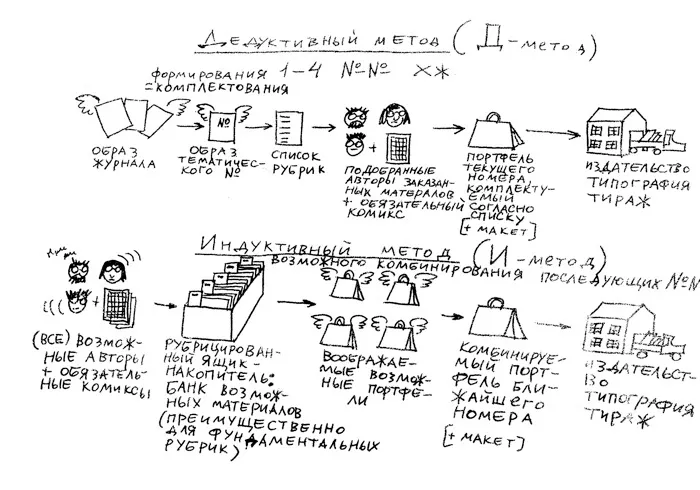 Дедуктивный метод (Д-метод)
формирования 1-4 №№ ХЖ
=комплектования
№
ОБРАЗ
ЖУРНАЛА
ОБРАЗ
ТЕМАТИЧЕС-
КОГО №
СПИСОК
РУБРИК
+
ПОДОБРАННЫЕ
АВТОРЫ ЗАКАЗАН-
НЫХ МАТЕРАЛОВ
+ ОБЯЗАТЕЛЬНЫЙ
КОМИКС
ПОРТФЕЛЬ
ТЕКУЩЕГО
НОМЕРА,
КОМПЛЕКТУ-
ЕМЫЙ
СОГЛАСНО
СПИСКУ
[+ МАКЕТ]
ИЗДАТЕЛЬСТВО
ТИПОГРАФИЯ
ТИРАЖ
Индуктивный метод (И-метод)
ВОЗМОЖНОГО КОМБИНИРОВАНИЯ ПОСЛЕДУЮЩИХ №№
+
(ВСЕ) ВОЗМОЖ-
НЫЕ АВТОРЫ
+ ОБЯЗАТЕЛЬ-
НЫЕ КОМИКСЫ
РУБРИЦИРОВАН-
НЫЙ ЯЩИК-
НАКОПИТЕЛЬ:
БАНК ВОЗМОЖ-
НЫХ МАТЕРИАЛОВ
(ПРЕИМУЩЕСТВЕННО
ДЛЯ ФУНДАМЕНТАЛЬНЫХ
РУБРИК)
ВООБРАЖАЕ-
МЫЕ ВОЗМОЖ-
НЫЕ ПОРТФЕ-
ЛИ
КОМБИНИРУЕ-
МЫЙ ПОРТ-
ФЕЛЬ БЛИ-
ЖАЙШЕГО
НОМЕРА
[+ МАКЕТ]
ИЗДАТЕЛЬСТ-
ВО
ТИПОГРАФИЯ
ТИРАЖ